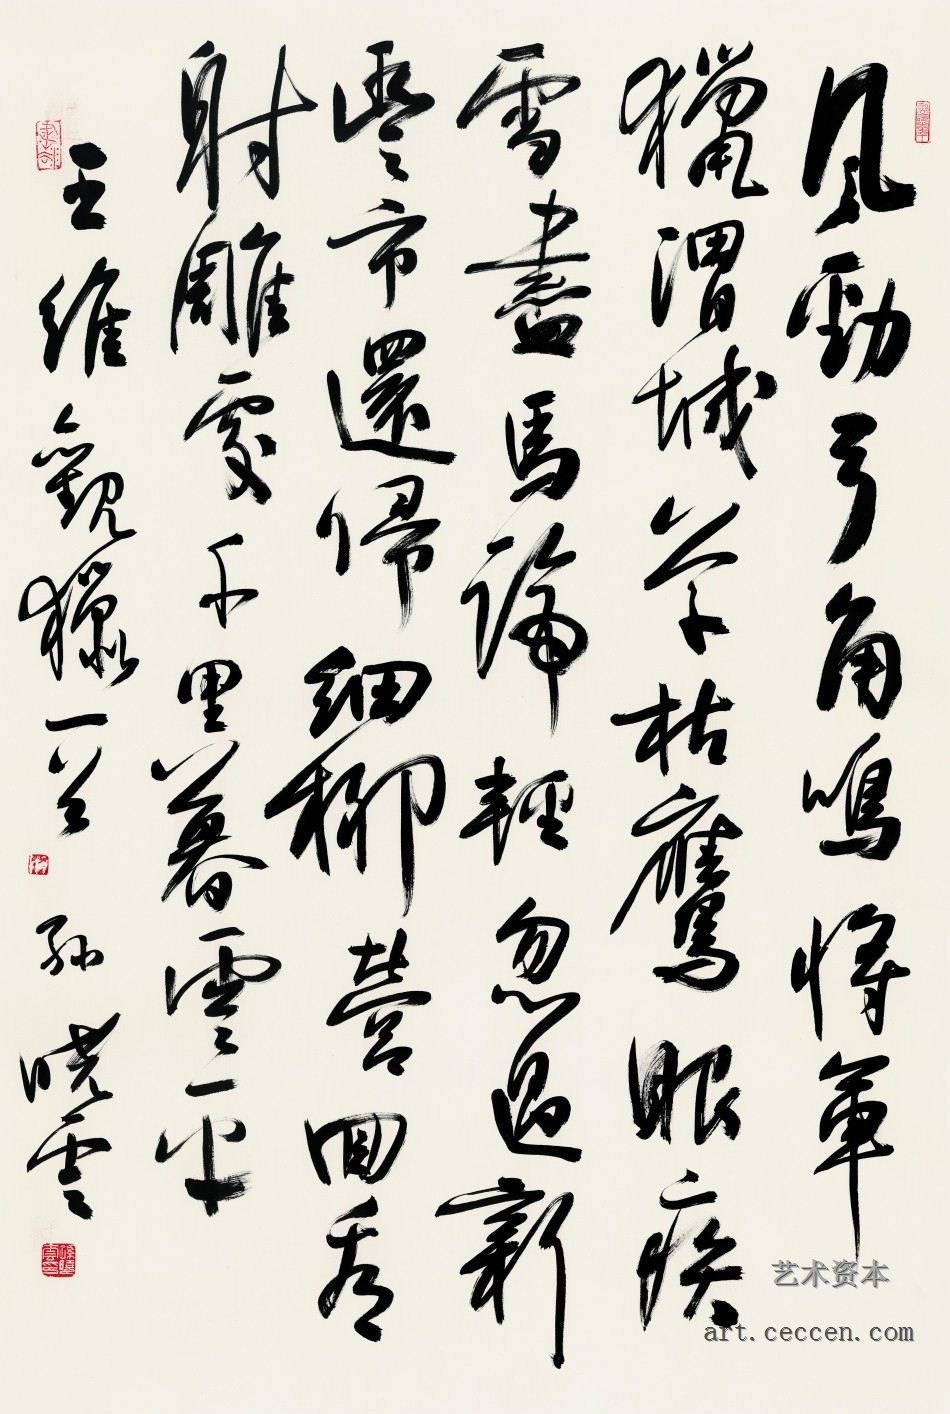 風勁弓角鳴將軍
獵渭城草枯鷹眼疾
雪盡馬蹄輕忽過新
豐市還歸細柳營回看
射雕處千里暮雲平
王維觀獵一首 孫曉雲
艺术资本
art.ceccen.com